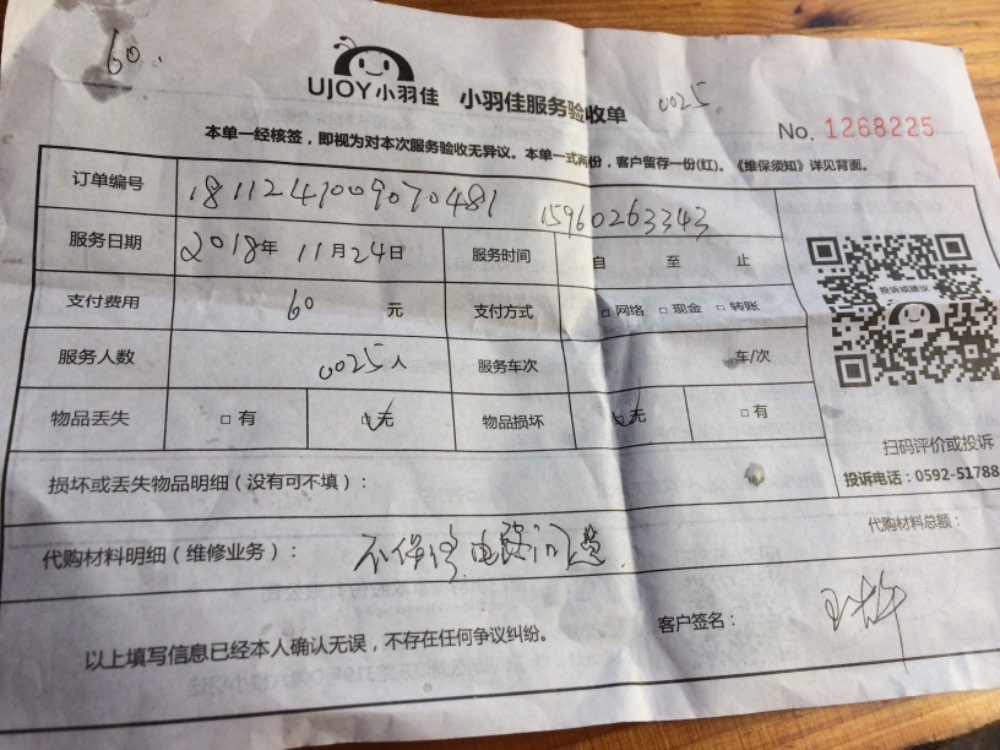 60.
UJOY小羽佳 小羽佳服务验收单 0025
No. 1268225
本单一经核签，即视为对本次服务验收无异议。本单一式两份，客户留存一份(红)。《维保须知》详见背面。
订单编号 1811241009070481 15960263343
服务日期 2018年 11月24日 服务时间 自 至 止
支付费用 60 元 支付方式 □ 网络 □ 现金 □ 转账
服务人数 0025人 服务车次 车/次
物品丢失 □ 有 □ 无 物品损坏 □ 无 □ 有
投诉或建议
扫码评价或投诉
投诉电话：0592-51788
损坏或丢失物品明细（没有可不填）：
代购材料总额：
代购材料明细（维修业务）： 不保修.电路问题.
以上填写信息已经本人确认无误，不存在任何争议纠纷。 客户签名：